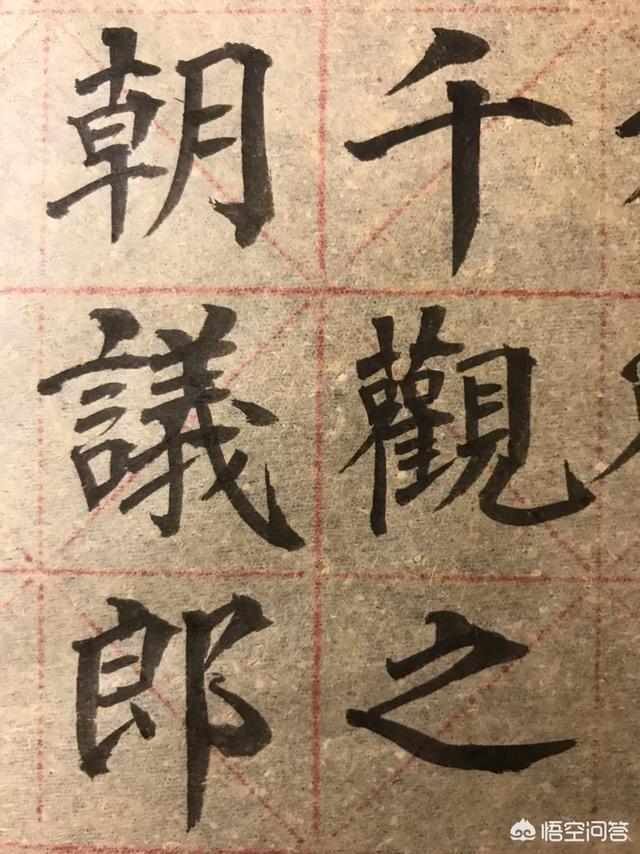 千觀之
朝議郎
悟空问答